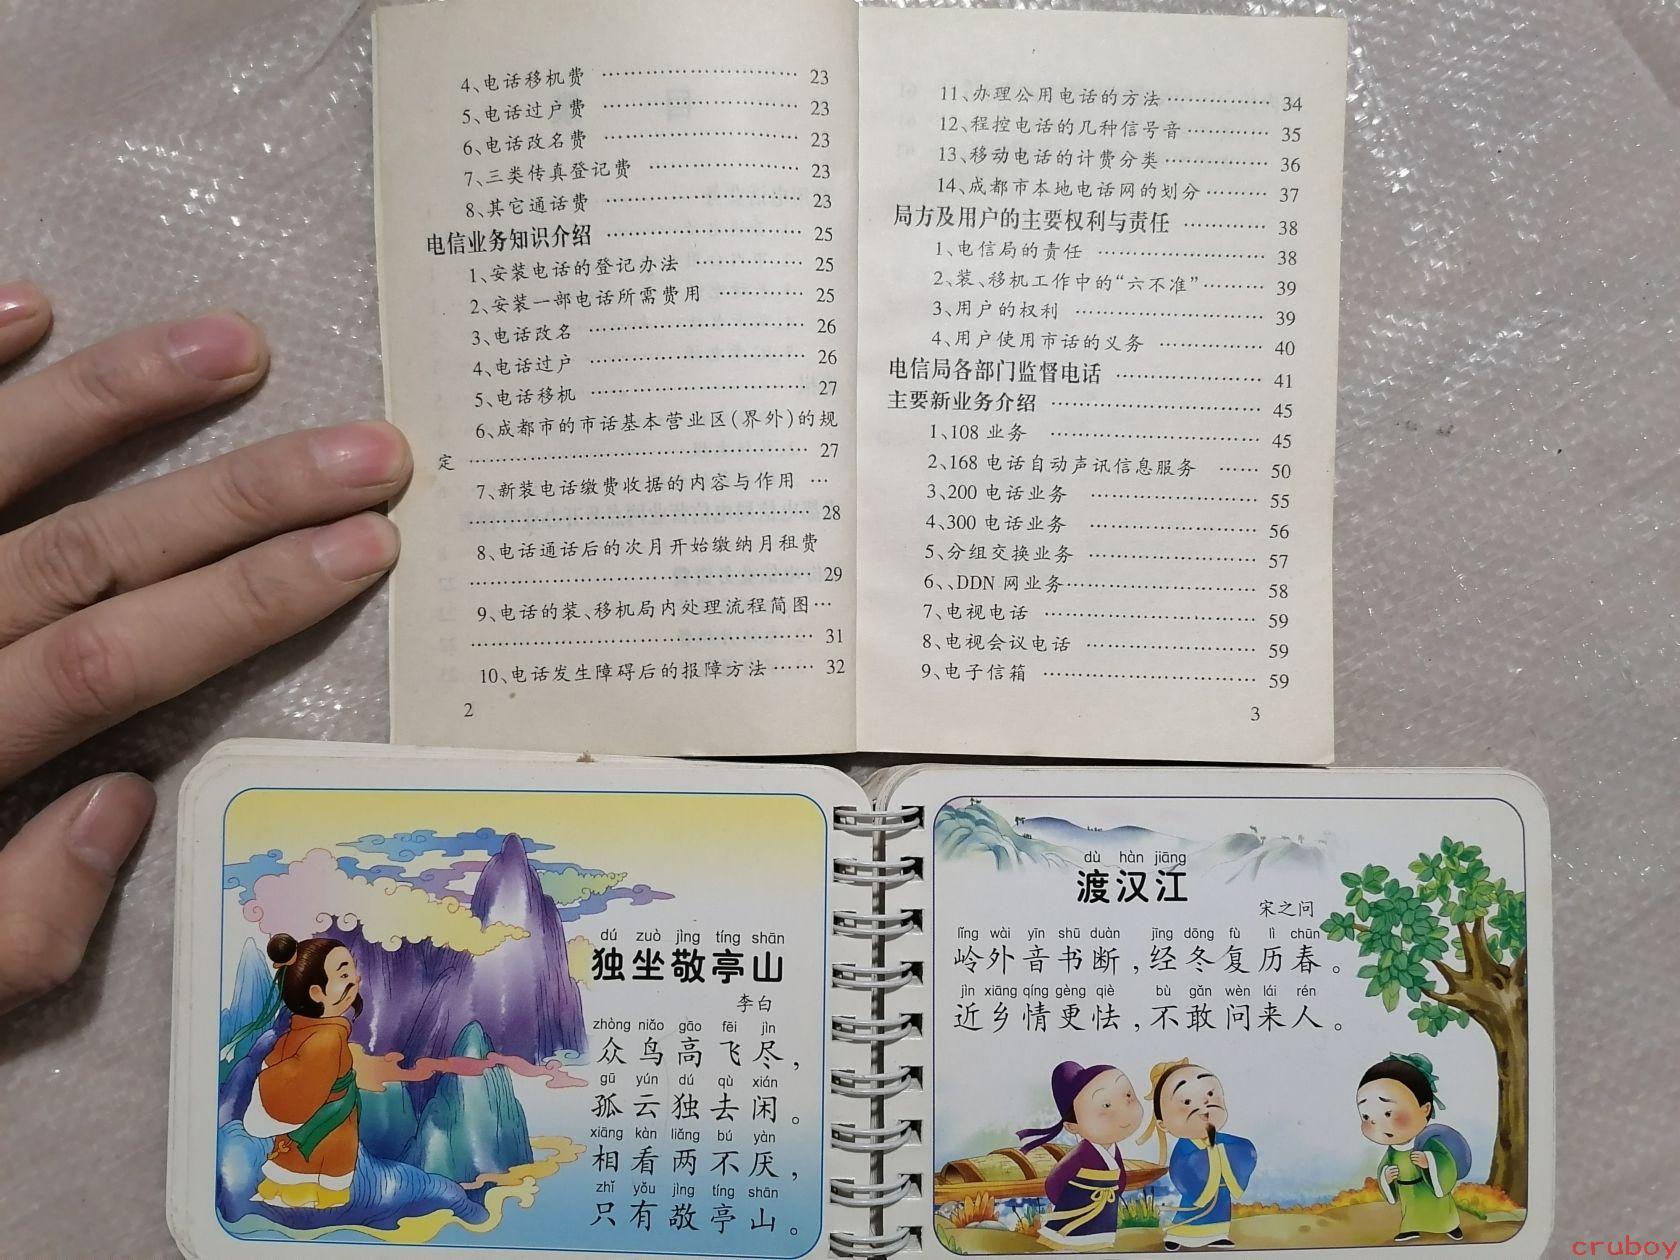 4、电话移机费 ………………… 23
5、电话过户费 ………………… 23
6、电话改名费 ………………… 23
7、三类传真登记费 …………… 23
8、其它通话费 ………………… 23
电信业务知识介绍 ………………… 25
1、安装电话的登记办法 ………… 25
2、安装一部电话所需费用 ……… 25
3、电话改名 …………………… 26
4、电话过户 …………………… 26
5、电话移机 …………………… 27
6、成都市的市话基本营业区(界外)的规
定 ………………………………… 27
7、新装电话缴费收据的内容与作用 …
………………………………… 28
8、电话通话后的次月开始缴纳月租费
………………………………… 29
9、电话的装、移机局内处理流程简图…
………………………………… 31
10、电话发生障碍后的报障方法…… 32
2
11、办理公用电话的方法…………… 34
12、程控电话的几种信号音………… 35
13、移动电话的计费分类…………… 36
14、成都市本地电话网的划分……… 37
局方及用户的主要权利与责任 ………… 38
1、电信局的责任 ………………… 38
2、装、移机工作中的“六不准”……… 39
3、用户的权利 …………………… 39
4、用户使用市话的义务 ………… 40
电信局各部门监督电话 ……………… 41
主要新业务介绍 ……………………… 45
1、108 业务 ……………………… 45
2、168 电话自动声讯信息服务 …… 50
3、200 电话业务 ………………… 55
4、300 电话业务 ………………… 56
5、分组交换业务 ………………… 57
6、、DDN 网业务………………… 58
7、电视电话 ……………………… 59
8、电视会议电话 ………………… 59
9、电子信箱 ……………………… 59
3
dú zuò jìng tíng shān
独坐敬亭山
李白
zhòng niǎo gāo fēi jìn
众鸟高飞尽，
gū yún dú qù xián
孤云独去闲。
xiāng kàn liǎng bú yàn
相看两不厌，
zhǐ yǒu jìng tíng shān
只有敬亭山。
dù hàn jiāng
渡汉江
宋之问
lǐng wài yīn shū duàn jīng dōng fù lì chūn
岭外音书断，经冬复历春。
jìn xiāng qíng gèng qiè bù gǎn wèn lái rén
近乡情更怯，不敢问来人。
cruboy